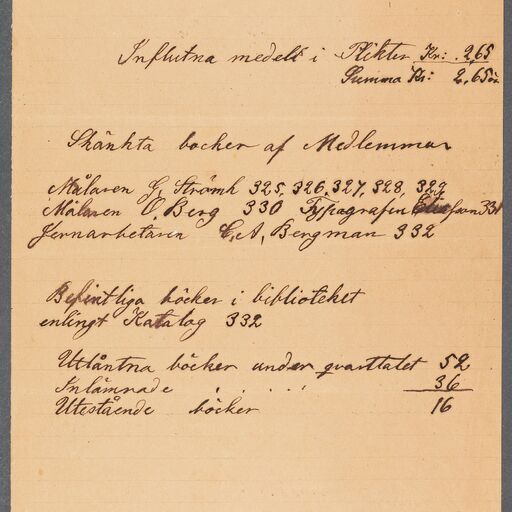 Influtna medel i Plikter Kr: 2,65
Summa Kr: 2,65 ör
Skänkta bocker af Medlemmar
Målaren G, Strömh 325, 326, 327, 328, 329
Målaren O, Berg 330 Typografen Eliasson 331
Jernarbetaren C, A, Bergman 332
Befintliga böcker i biblioteket
enlingt Katalog 332
Utlåntna böcker under qvarttalet 52
Inlämnade . . . . 36
Utestående böcker 16